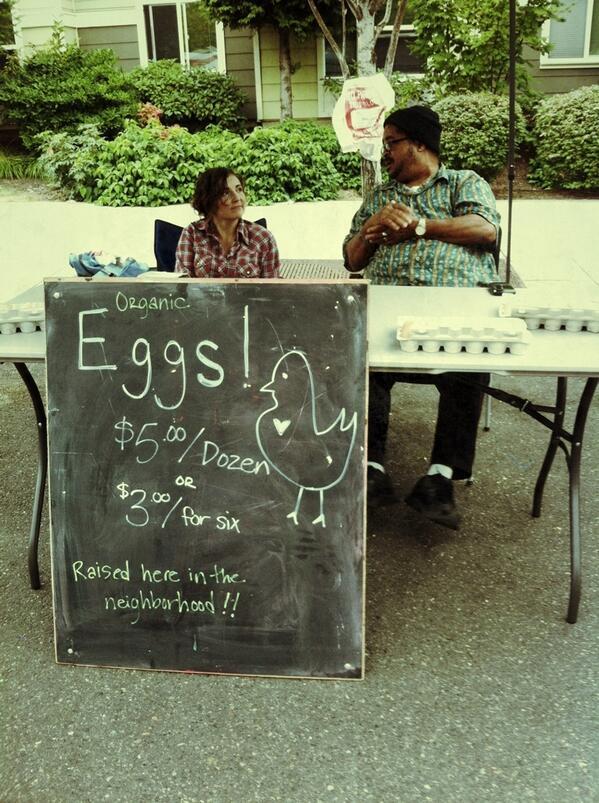 Organic
Eggs!
$5.00/Dozen
OR
$3.00/for six
Raised here in the
neighborhood!!